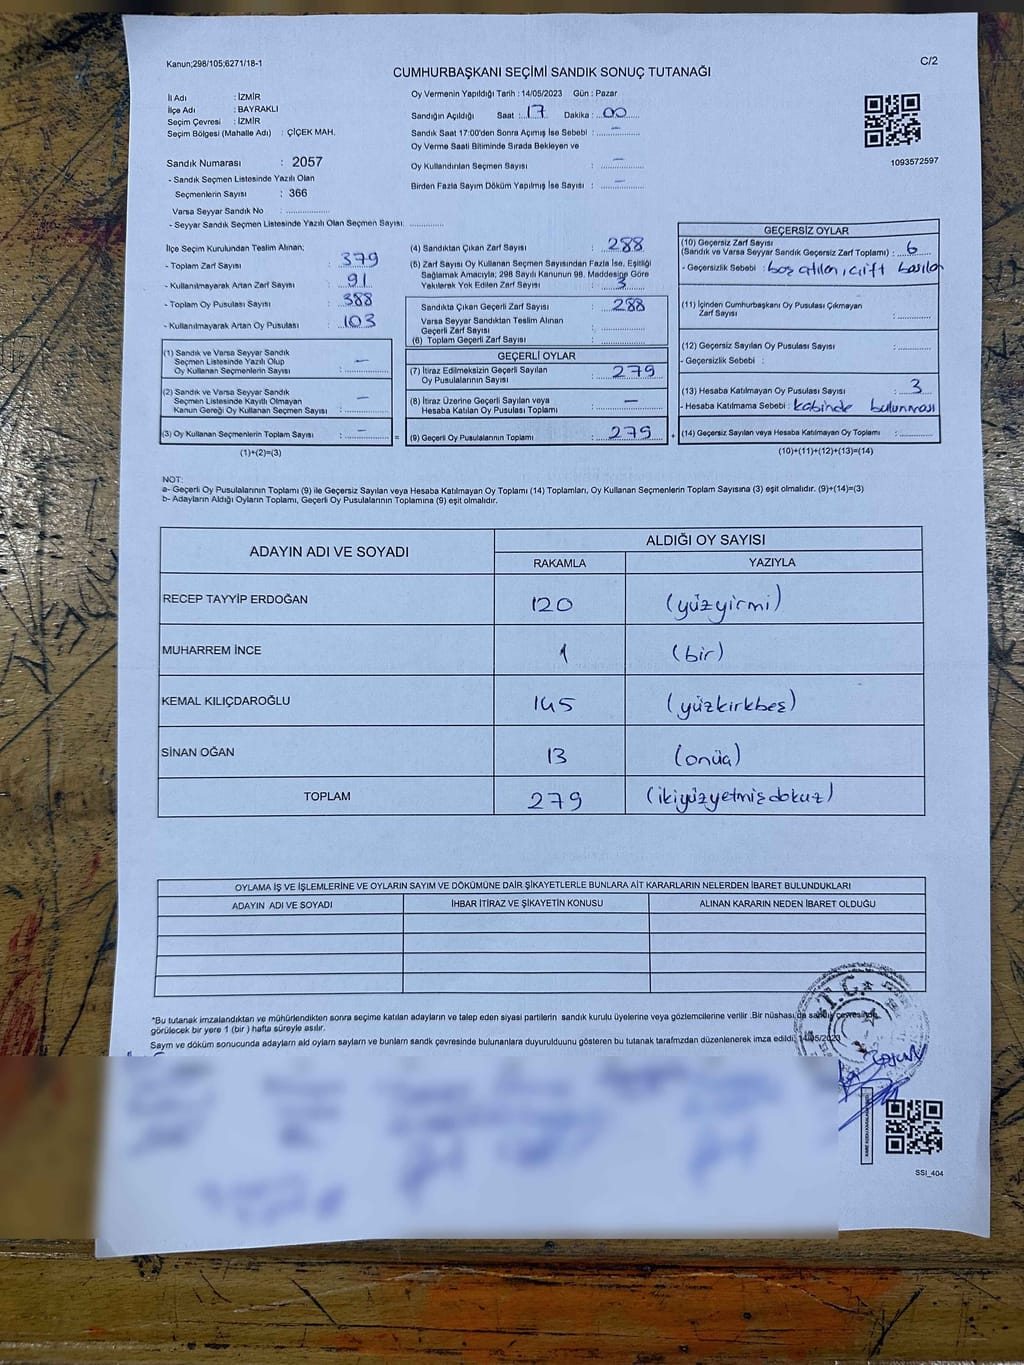 Kanun;298/105;6271/18-1
C/2
CUMHURBAŞKANI SEÇİMİ SANDIK SONUÇ TUTANAĞI
İl Adı : İZMİR
İlçe Adı : BAYRAKLI
Seçim Çevresi : İZMİR
Seçim Bölgesi (Mahalle Adı) : ÇİÇEK MAH.
Sandık Numarası : 2057
- Sandık Seçmen Listesinde Yazılı Olan
Seçmenlerin Sayısı : 366
Varsa Seyyar Sandık No : ................
- Seyyar Sandık Seçmen Listesinde Yazılı Olan Seçmen Sayısı: ............
Oy Vermenin Yapıldığı Tarih : 14/05/2023 Gün : Pazar
Sandığın Açıldığı Saat : 17 Dakika : 00
Sandık Saat 17:00'den Sonra Açımış İse Sebebi : –
Oy Verme Saati Bitiminde Sırada Bekleyen ve
Oy Kullandırılan Seçmen Sayısı : –
Birden Fazla Sayım Döküm Yapılmış İse Sayısı : –
1093572597
İlçe Seçim Kurulundan Teslim Alınan;
- Toplam Zarf Sayısı : 379
- Kullanılmayarak Artan Zarf Sayısı : 91
- Toplam Oy Pusulası Sayısı : 388
- Kullanılmayarak Artan Oy Pusulası : 103
(1) Sandık ve Varsa Seyyar Sandık
Seçmen Listesinde Yazılı Olup
Oy Kullanan Seçmenlerin Sayısı : –
(2) Sandık ve Varsa Seyyar Sandık
Seçmen Listesinde Kayıtlı Olmayan
Kanun Gereği Oy Kullanan Seçmen Sayısı : –
(3) Oy Kullanan Seçmenlerin Toplam Sayısı : –
(1)+(2)=(3)
=
(4) Sandıktan Çıkan Zarf Sayısı : 288
(5) Zarf Sayısı Oy Kullanan Seçmen Sayısından Fazla İse, Eşitliği
Sağlamak Amacıyla; 298 Sayılı Kanunun 98. Maddesine Göre
Yakılarak Yok Edilen Zarf Sayısı : 3
Sandıkta Çıkan Geçerli Zarf Sayısı : 288
Varsa Seyyar Sandıktan Teslim Alınan
Geçerli Zarf Sayısı : ............
(6) Toplam Geçerli Zarf Sayısı : ............
GEÇERLİ OYLAR
(7) İtiraz Edilmeksizin Geçerli Sayılan
Oy Pusulalarının Sayısı : 279
(8) İtiraz Üzerine Geçerli Sayılan veya
Hesaba Katılan Oy Pusulası Toplamı : –
(9) Geçerli Oy Pusulalarının Toplamı : 279
+
GEÇERSİZ OYLAR
(10) Geçersiz Zarf Sayısı
(Sandık ve Varsa Seyyar Sandık Geçersiz Zarf Toplamı) : 6
- Geçersizlik Sebebi : boş atılan, çift basılan
(11) İçinden Cumhurbaşkanı Oy Pusulası Çıkmayan
Zarf Sayısı : .........
(12) Geçersiz Sayılan Oy Pusulası Sayısı : .........
- Geçersizlik Sebebi :
(13) Hesaba Katılmayan Oy Pusulası Sayısı : 3
- Hesaba Katılmama Sebebi : kabinde bulunması
(14) Geçersiz Sayılan veya Hesaba Katılmayan Oy Toplamı : .........
(10)+(11)+(12)+(13)=(14)
NOT:
a- Geçerli Oy Pusulalarının Toplamı (9) ile Geçersiz Sayılan veya Hesaba Katılmayan Oy Toplamı (14) Toplamları, Oy Kullanan Seçmenlerin Toplam Sayısına (3) eşit olmalıdır. (9)+(14)=(3)
b- Adayların Aldığı Oyların Toplamı, Geçerli Oy Pusulalarının Toplamına (9) eşit olmalıdır.
ADAYIN ADI VE SOYADI
ALDIĞI OY SAYISI
RAKAMLA YAZIYLA
RECEP TAYYİP ERDOĞAN 120 (yüzyirmi)
MUHARREM İNCE 1 (bir)
KEMAL KILIÇDAROĞLU 145 (yüzkırkbeş)
SİNAN OĞAN 13 (onüç)
TOPLAM 279 (ikiyüzyetmişdokuz)
OYLAMA İŞ VE İŞLEMLERİNE VE OYLARIN SAYIM VE DÖKÜMÜNE DAİR ŞİKAYETLERLE BUNLARA AİT KARARLARIN NELERDEN İBARET BULUNDUKLARI
ADAYIN ADI VE SOYADI İHBAR İTİRAZ VE ŞİKAYETİN KONUSU ALINAN KARARIN NEDEN İBARET OLDUĞU
*Bu tutanak imzalandıktan ve mühürlendikten sonra seçime katılan adayların ve talep eden siyasi partilerin sandık kurulu üyelerine veya gözlemcilerine verilir .Bir nüshası da sandık çevresinde
görülecek bir yere 1 (bir ) hafta süreyle asılır.
Sayım ve döküm sonucunda adayların ald oyların sayları ve bunların sandk çevresinde bulunanlara duyurulduunu gösteren bu tutanak tarafmzdan düzenlenerek imza edildi. 14/05/2023
T.C.
SSI_404